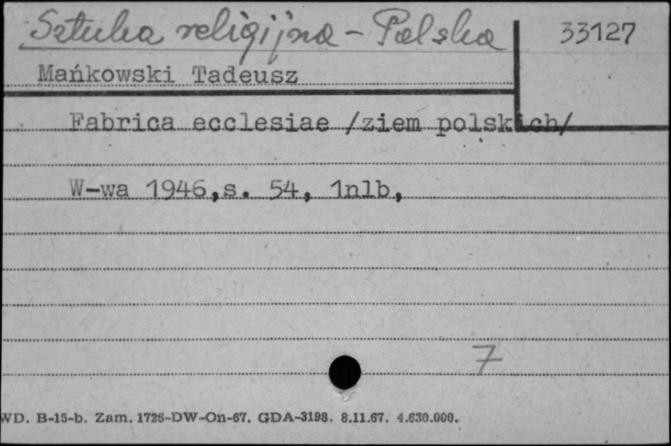 Sztuka religijna - Polska 33127
Mańkowski Tadeusz
Fabrica ecclesiae /ziem polskich/
W-wa 1946,s. 54, 1nlb,
7
WD. B-15-b. Zam. 1726-DW-On-67. GDA-3198. 8.11.67. 4.630.000.